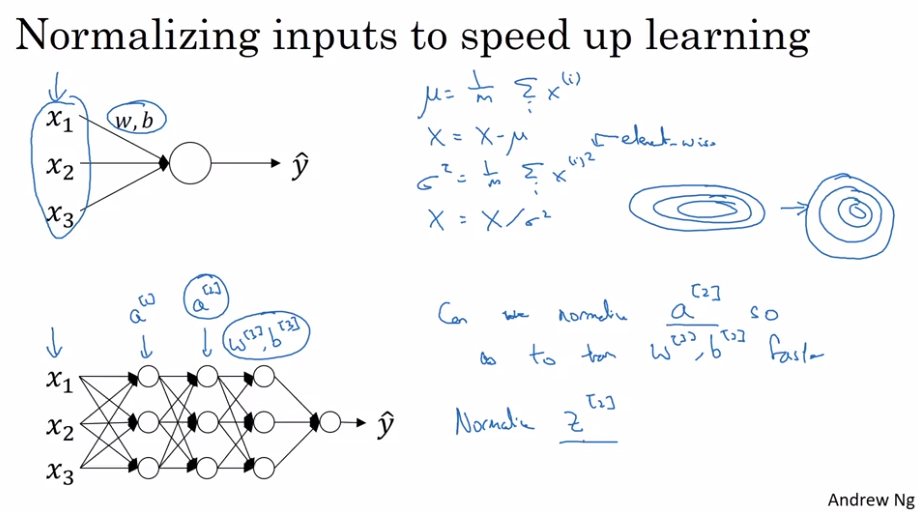 Normalizing inputs to speed up learning
x₁
w, b
x₂
x₃
ŷ
μ = 1/m Σᵢ x⁽ⁱ⁾
X = X - μ
σ² = 1/m Σᵢ x⁽ⁱ⁾² ← element-wise
X = X/σ²
a^[1]
a^[2]
w^[3], b^[3]
x₁
x₂
x₃
ŷ
Can we normalize a^[2] so
as to train w^[3], b^[3] faster
Normalize z^[2]
Andrew Ng